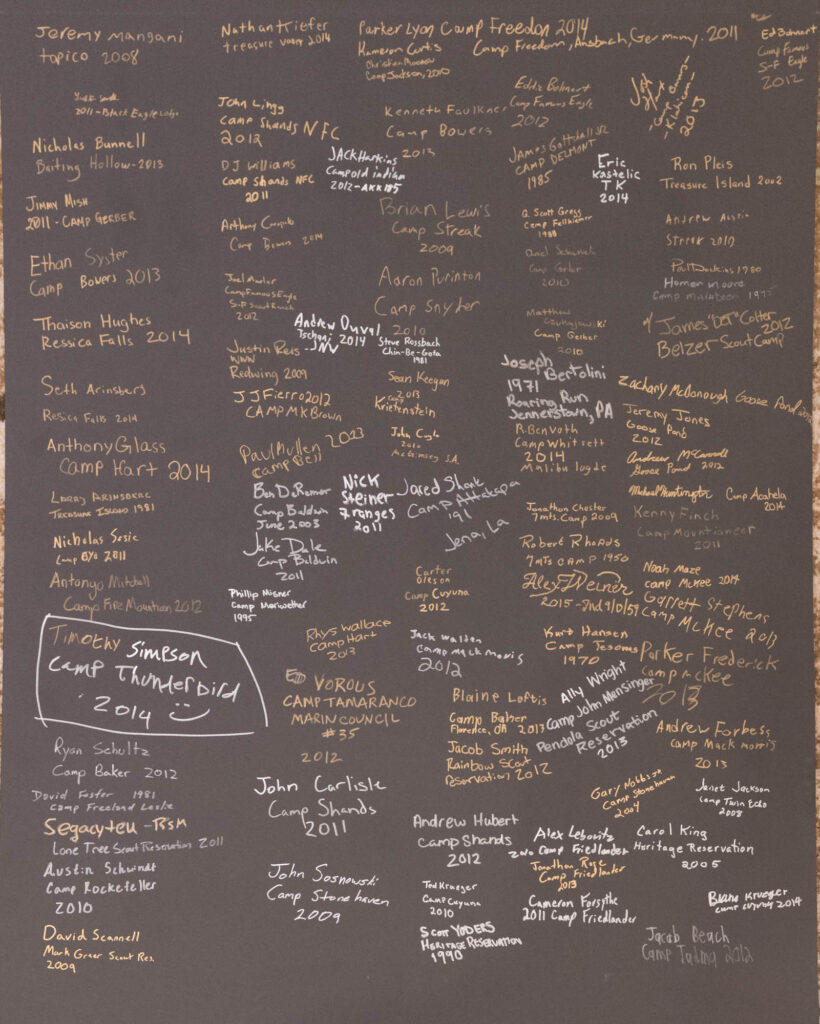 Jeremy Mangani
topico 2008
Nathan Kiefer
treasure vally 2014
Parker Lyon Camp Freedon 2014
Kameron Curtis
Camp Freedom, Ansbach, Germany. 2011
Camp Jackson, 2010
Ed Bohnert
Camp Famous
S-F Eagle
2012
2011 - Black Eagle Lodge
John Lingg
Camp Shands NFC
2012
Kenneth Faulkner
Camp Bowers
2013
Eddie Bohnert
Camp Famous Eagle
2012
2013
Nicholas Bunnell
Baiting Hollow - 2013
DJ Williams
Camp Shands NFC
2011
JACK Harkins
Camp old indian
2012 - AKK 185
James Gottshall JR
CAMP DELMONT
1985
Eric
Kastelic
TK
2014
Ron Pleis
Treasure Island 2002
Jimmy Mish
2011 - Camp Gerber
Anthony
Camp Bowers 2014
Brian Lewis
Camp Streak
2009
G. Scott Gress
Camp
1988
Andrew Austin
Streek 2010
Ethan Syster
Camp Bowers 2013
Joel
Camp Famous Eagle
S-F Scout Ranch
2012
Aaron Purinton
Camp Snyder
2010
Camp Gerber
2010
Paul Dawkins 1980
Homer Moore
Camp
Thaison Hughes
Ressica Falls 2014
Andrew Duval
Tschani 2014
JNV
Steve Rossbach
Chin-Be-Gota
1981
Matthew
Camp Gerber
2010
James "DOT" Colter
2012
Belzer Scout Camp
Justin Reis
WWW
Redwing 2009
Seth Arinsberg
Resica Falls 2014
J J Fierro 2012
CAMP MK Brown
Sean Keegan
2013
Camp
Krietenstein
Joseph Bertolini
1971
Roaring Run
Jennerstown, PA
Zachary McDonough Goose Pond
Anthony Glass
Camp Hart 2014
Paul Mullen 2023
Camp Bell
John Coyle
2010
McGimsey S.R.
R. Ben Voth
Camp Whitsett
2014
Malibu logde
Jeremy Jones
Goose Pond
2012
Andrew McCarroll
Goose Pond 2012
Larry Arinsberg
Treasure Island 1981
Ben DeRemer
Camp Baldwin
June 2003
Nick
Steiner
7 ranges
2011
Jared Shonk
Camp Attakapa
191
Jena, La
Jonathan Chester
7mts. Camp 2009
Michael Huntington Camp Acahela
2014
Kenny Finch
Camp Mountaineer
2011
Nicholas Sesic
2011
Jake Dale
Camp Baldwin
2011
Robert Rhoads
7mts CAMP 1950
Noah Maze
camp McKee 2014
Antonyo Mitchell
Camp Fire Mountain 2012
Phillip Misner
Camp Meriwether
1995
Carter
Oleson
Camp Cuyuna
2012
Alex J Weiner
2015 - 2nd 9/0/59
Garrett Stephens
Camp McKee 2013
Timothy Simpson
Camp Thunderbird
2014
Rhys Wallace
Camp Hart
2013
Jack Walden
Camp Mack Morris
2012
Kurt Hansen
Camp Tesomas
1970
Parker Frederick
Camp McKee
2013
VOROUS
CAMP TAMARANCO
MARIN COUNCIL
#35
2012
Blaine Loftis
Camp Baker
Florence, OR 2013
Ally Wright
Camp John Mensinger
Pendola Scout
Reservation
2013
Andrew Forbess
Camp Mack Morris
2013
Ryan Schultz
Camp Baker 2012
Jacob Smith
Rainbow Scout
Reservation 2012
David Foster 1981
Camp Freeland Leslie
John Carlisle
Camp Shands
2011
Gary Nobbs
Camp Stonehaven
2004
Janet Jackson
Camp Twin Echo
2008
Segacyteu - RSM
Lone Tree Scout Reservation 2011
Andrew Hubert
Camp Shands
2012
Alex Lebovitz
2010 Camp Friedlander
Carol King
Heritage Reservation
2005
Austin Schwindt
Camp Rocketeller
2010
John Sosnowski
Camp Stonehaven
2009
Jonathan Rose
Camp Friedlander
2013
Ted Krueger
Camp Cuyuna
2010
Cameron Forsythe
2011 Camp Friedlander
Blake Krueger
Camp Cuyuna 2014
David Scannell
Mark Greer Scout Res.
2009
Scott Yoders
Heritage Reservation
1990
Jacob Beach
Camp 2012